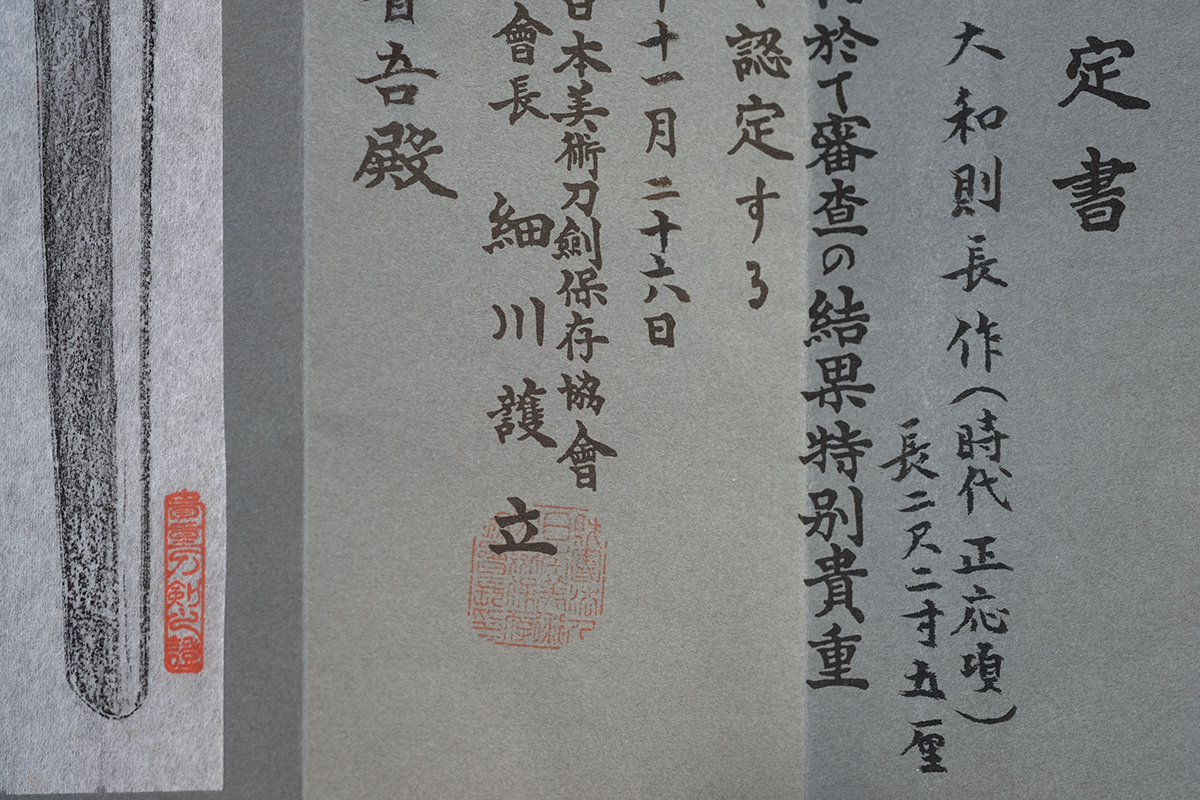 定書
大和則長作(時代 正応項)
長二尺二寸五厘
於て審査の結果特別貴重
認定する
十一月二十六日
日本美術刀劍保存協會
會長 細川護立
吾殿
貴重刀剣之證